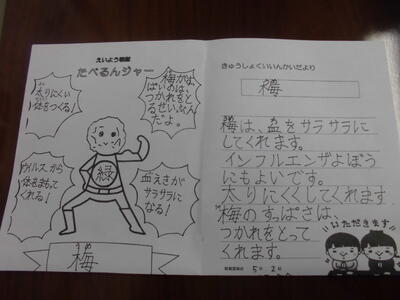 えいよう戦隊
たべるんジャー
太りにくい
体をつくる!
梅がす
ぱいのは、
つかれをと
るせいぶん
だよ。
緑
ウイルスから
体をまもって
くれる!
血えきが
サラサラに
なる!
うめ
梅
きゅうしょくいいんかいだより
うめ
梅
梅は、血をサラサラに
してくれます。
インフルエンザよぼう
にもよいです。
太りにくくしてくれます
梅のすっぱさは、
つかれをとって
くれます。
いただきます
5月2日